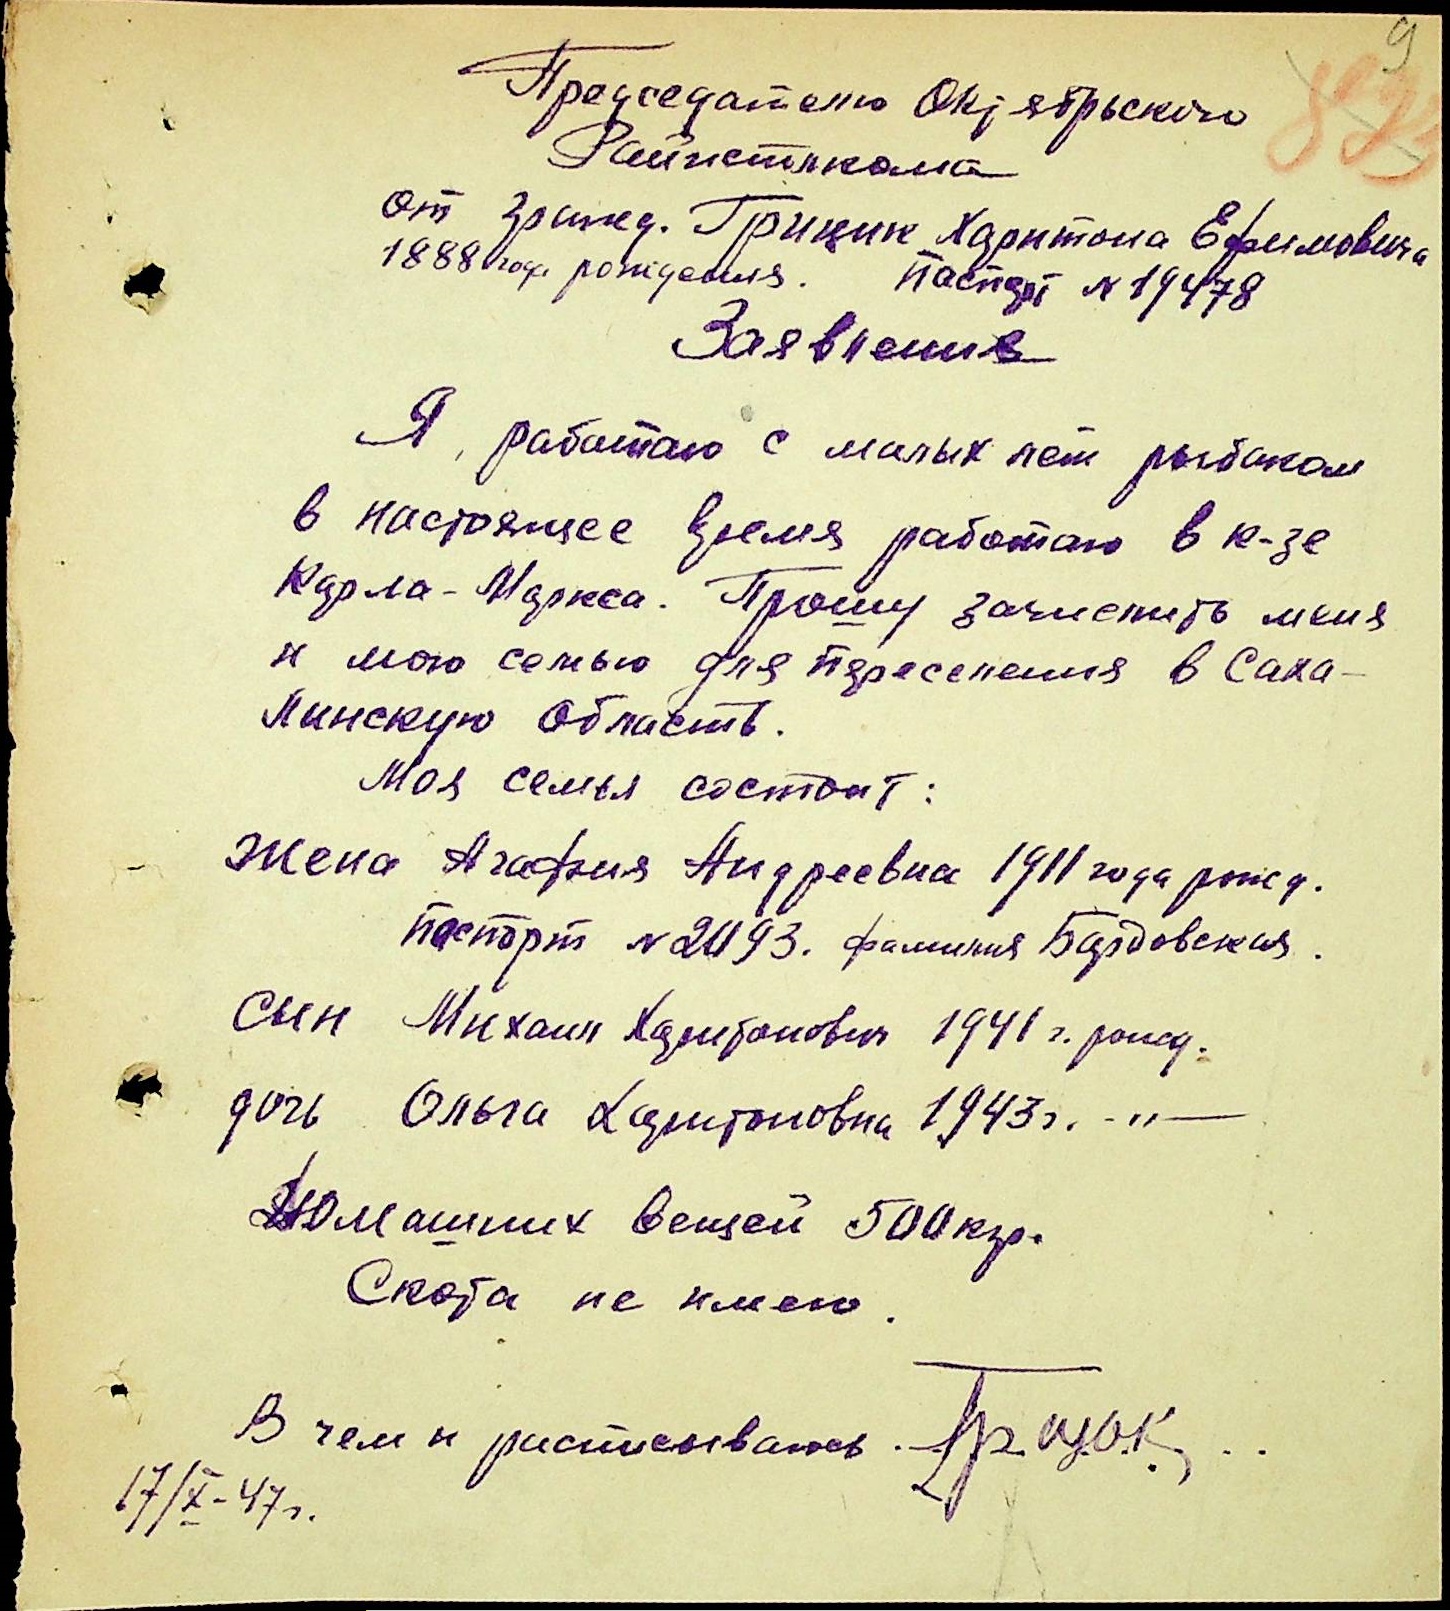 9
Председателю Октябрьского
Райисполкома
от гражд. Грицик Харитона Ефимовича
1888 года рождения. Паспорт № 19478
Заявление
Я, работаю с малых лет рыбаком
в настоящее время работаю в к-зе
Карла-Маркса. Прошу зачислить меня
и мою семью для переселения в Саха-
линскую область.
Моя семья состоит:
Жена Агафия Андреевна 1911 года рожд.
паспорт № 2493. фамилия Бардовская.
сын Михаил Харитонович 1941 г. рожд.
дочь Ольга Харитоновна 1943 г. -"-
Домашних вещей 500 кгр.
Скота не имею.
В чем и расписываюсь. Грицик
17/X-47 г.